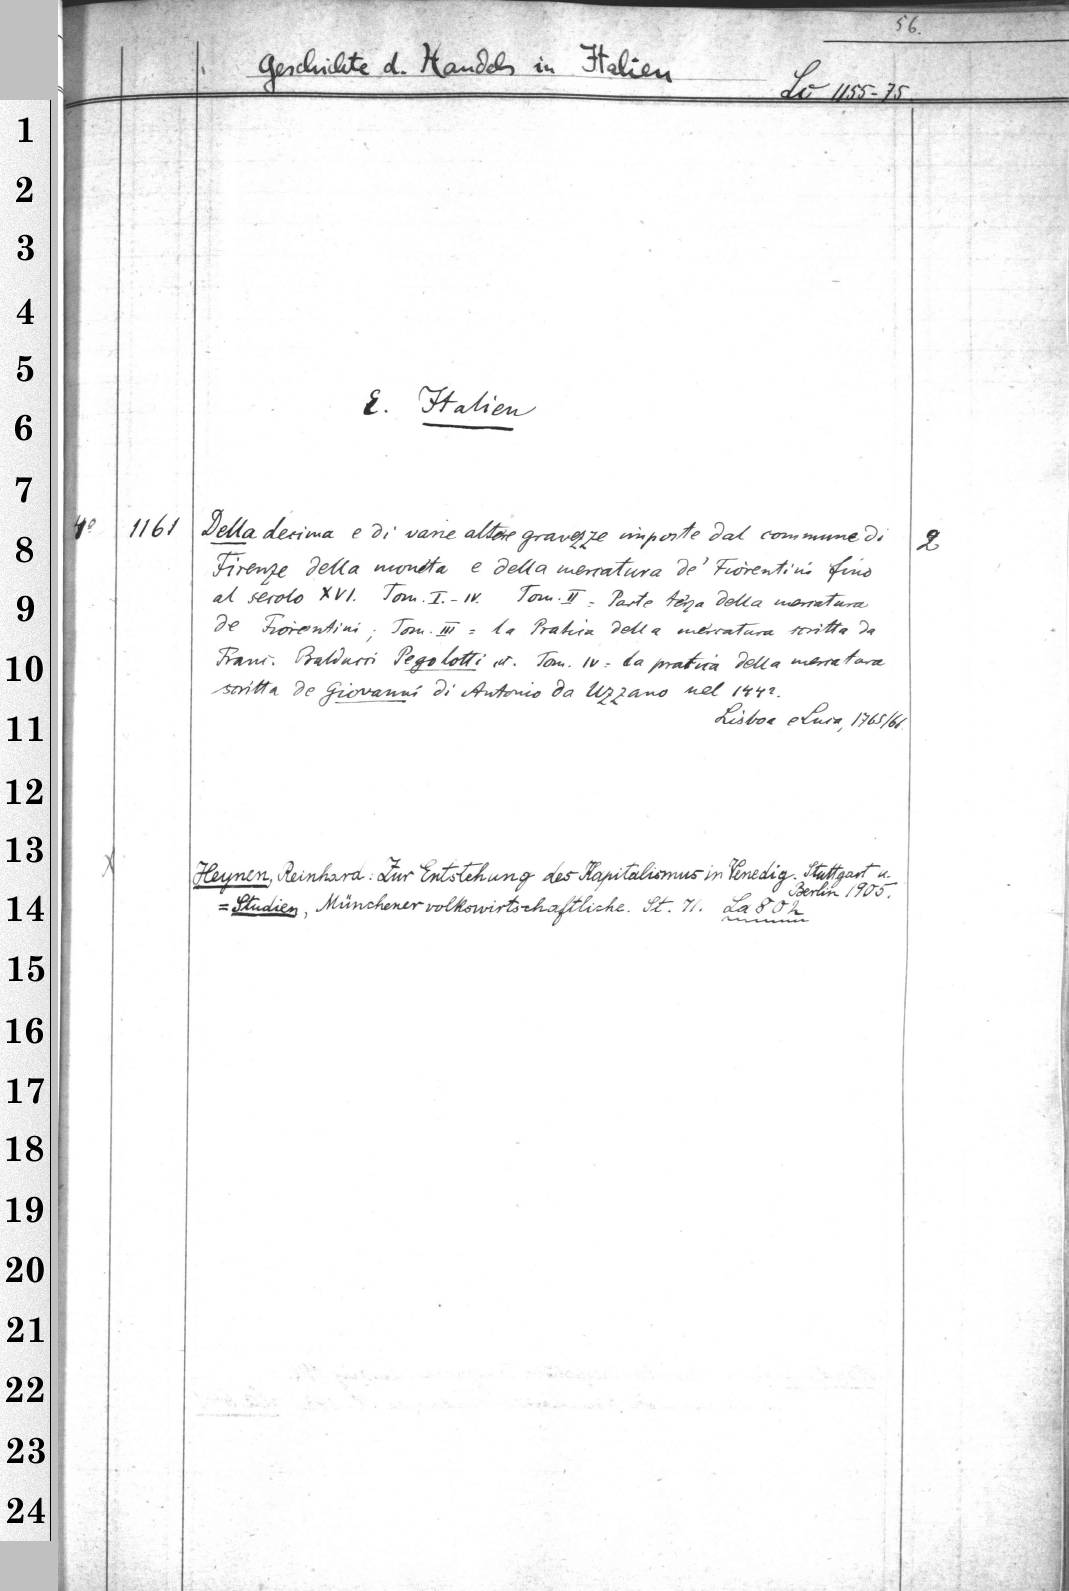 56.
Geschichte d. Handels in Italien
Lv 1155-75.
1
2
3
4
5
E. Italien
6
7
4° 1161 Della decima e di varie altere gravezze imposte dal commune di 2
8
Firenze della moneta e della mercatura de' Fiorentini fino
9
al secolo XVI. Tom. I.-IV. Tom. II = Parte terza della mercatura
de Fiorentini; Tom. III = la Pratica della mercatura scritta da
10
Franc. Balducci Pegolotti u. Tom. IV = la pratica della mercatura
scritta de Giovanni di Antonio da Uzzano nel 1442.
11
Lisboa e Lucca, 1765/66.
12
13
X Heynen, Reinhard: Zur Entstehung des Kapitalismus in Venedig. Stuttgart u.
Berlin 1905.
14
= Studien, Münchener volkswirtschaftliche. St. 71. La 80h
15
16
17
18
19
20
21
22
23
24